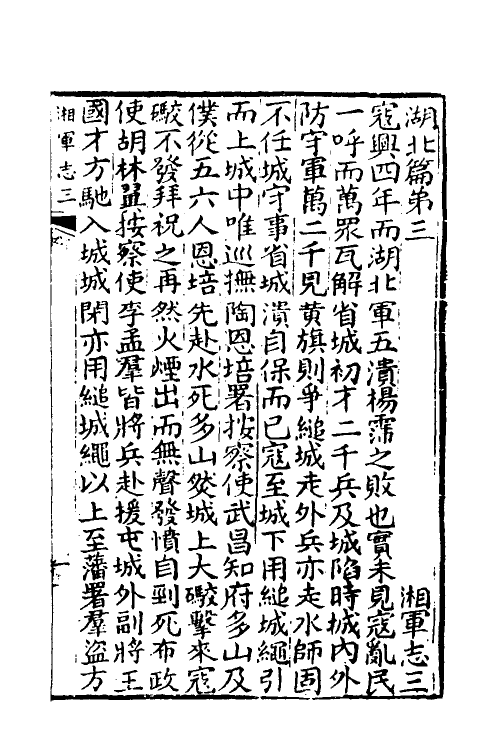 湖北篇第三　湘軍志三
寇興四年而湖北軍五潰楊霈之敗也實未見寇亂民
一呼而萬眾瓦解省城初才二千兵及城陷時城內外
防守軍萬二千見黃旗則爭縋城走外兵亦走水師固
不任城守事省城潰自保而已寇至城下用縋城繩引
而上城中唯巡撫陶恩培署按察使武昌知府多山及
僕從五六人恩培先赴水死多山然城上大礮擊來寇
礮不發拜祝之再然火煙出而無聲發憤自剄死布政
使胡林翼按察使李孟羣皆將兵赴援屯城外副將王
國才方馳入城城閉亦用縋城繩以上至藩署羣盜方
湘軍志三　一